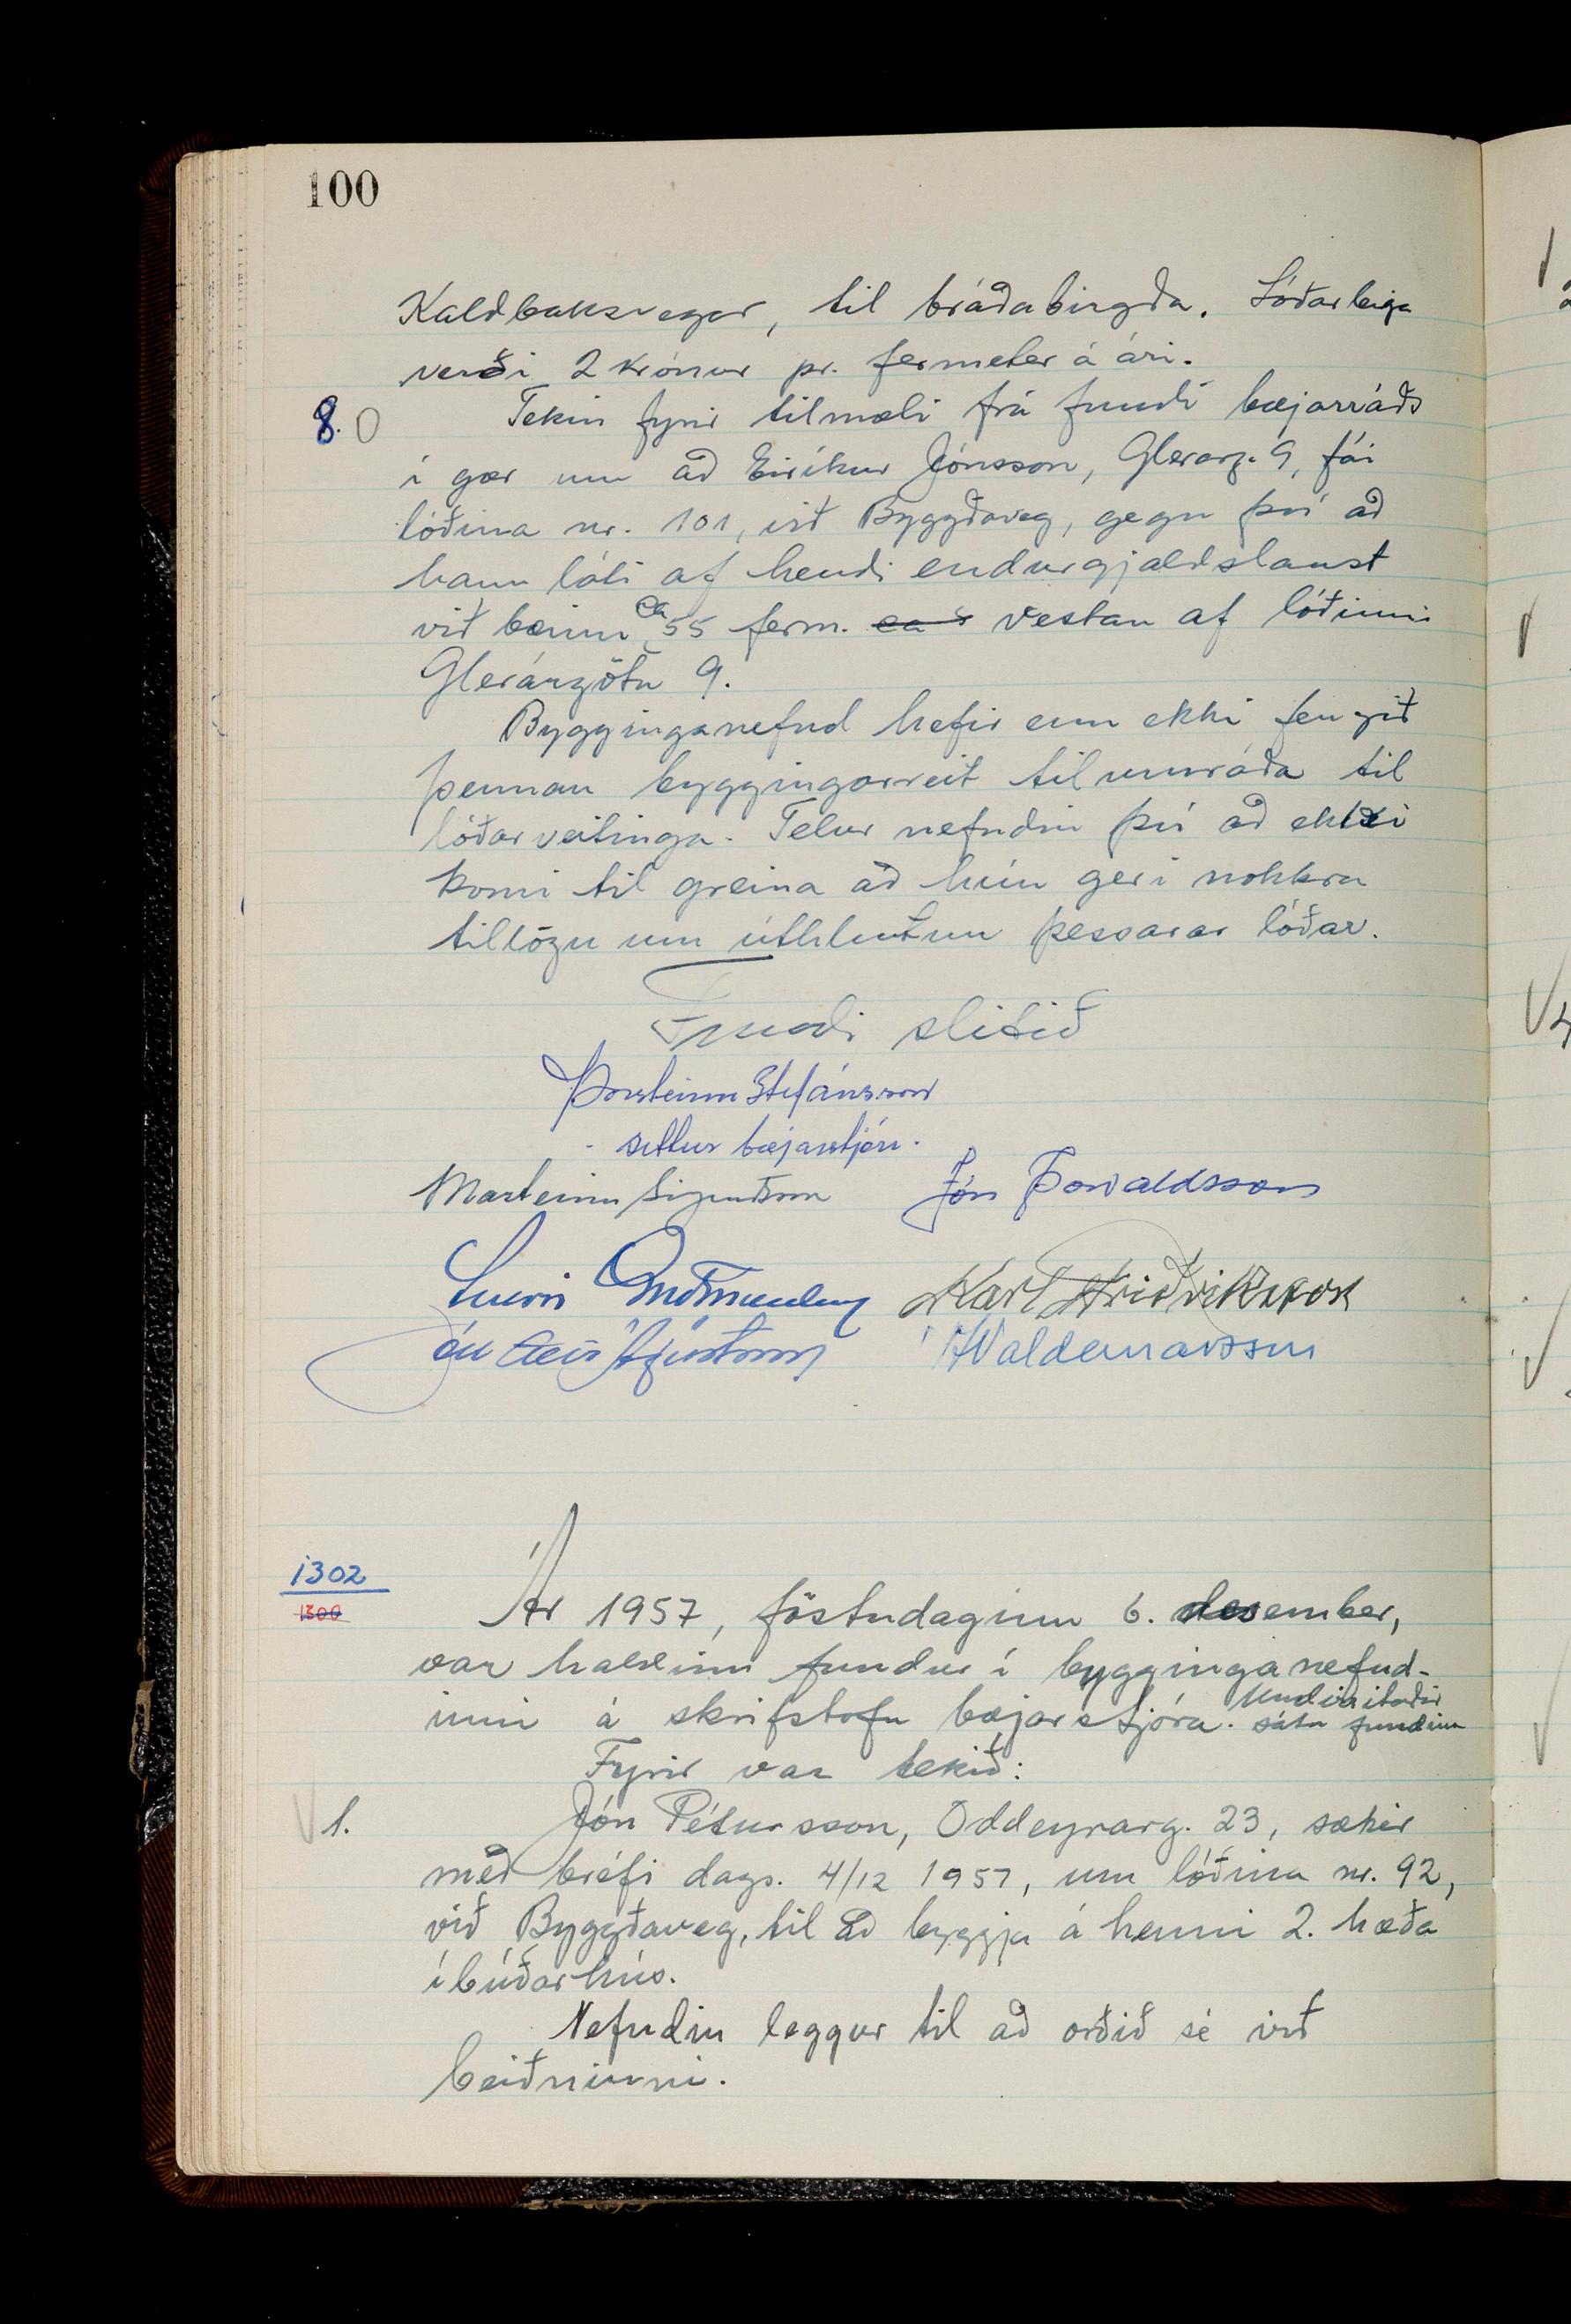 100
Kaldbaksvegar, til bráðabirgða. Lóðarleiga
verði 2 krónur pr. fermeter á ári.
8. Tekin fyrir tilmæli frá fundi bæjarráðs
í gær um að Eiríkur Jónsson, Glerárg. 9, fái
lóðina nr. 101, við Byggðaveg, gegn því að
hann láti af hendi endurgjaldslaust
við bæinn ca 55 ferm. vestan af lóðinni
Glerárgötu 9.
Bygginganefnd hefir enn ekki fengið
þennan byggingarreit til umráða til
lóðarveitinga. Telur nefndin því að ekki
komi til greina að hún geri nokkra
tillögu um úthlutun þessarar lóðar.
Fundi slitið
Þorsteinn Stefánsson
- settur bæjarstjóri.
Marteinn Sigurðsson Jón Þorvaldsson
Guðmundss Karl Friðriksson
Jón Geir Ágústsson Waldemarsson
1302
1300
Ár 1957, föstudaginn 6. desember,
var haldinn fundur í bygginganefnd-
inni á skrifstofu bæjarstjóra. Undirritaðir
sátu fundinn
Fyrir var tekið:
1. Jón Pétursson, Oddeyrarg. 23, sækir
með bréfi dags. 4/12 1957, um lóðina nr. 92,
við Byggðaveg, til að byggja á henni 2. hæða
íbúðarhús.
Nefndin leggur til að orðið sé við
beiðninni.